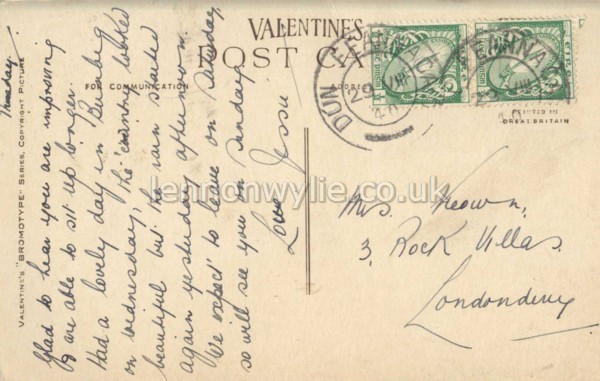 VALENTINES
POST CA
FOR COMMUNICATION
ADDRE
PRINTED IN
GREAT BRITAIN
DUN
29
40
VALENTINE'S "BROMOTYPE" SERIES, COPYRIGHT PICTURE
Thursday.
Glad to hear you are improving
& are able to sit up longer.
Had a lovely day in Bunbeg
on Wednesday, the country looked
beautiful but the rain started
again yesterday afternoon.
We expect to leave on Saturday
so will see you on Sunday
Love Jessie
Mrs. Keown,
3, Rock Villas.
Londonderry
lennonwylie.co.uk